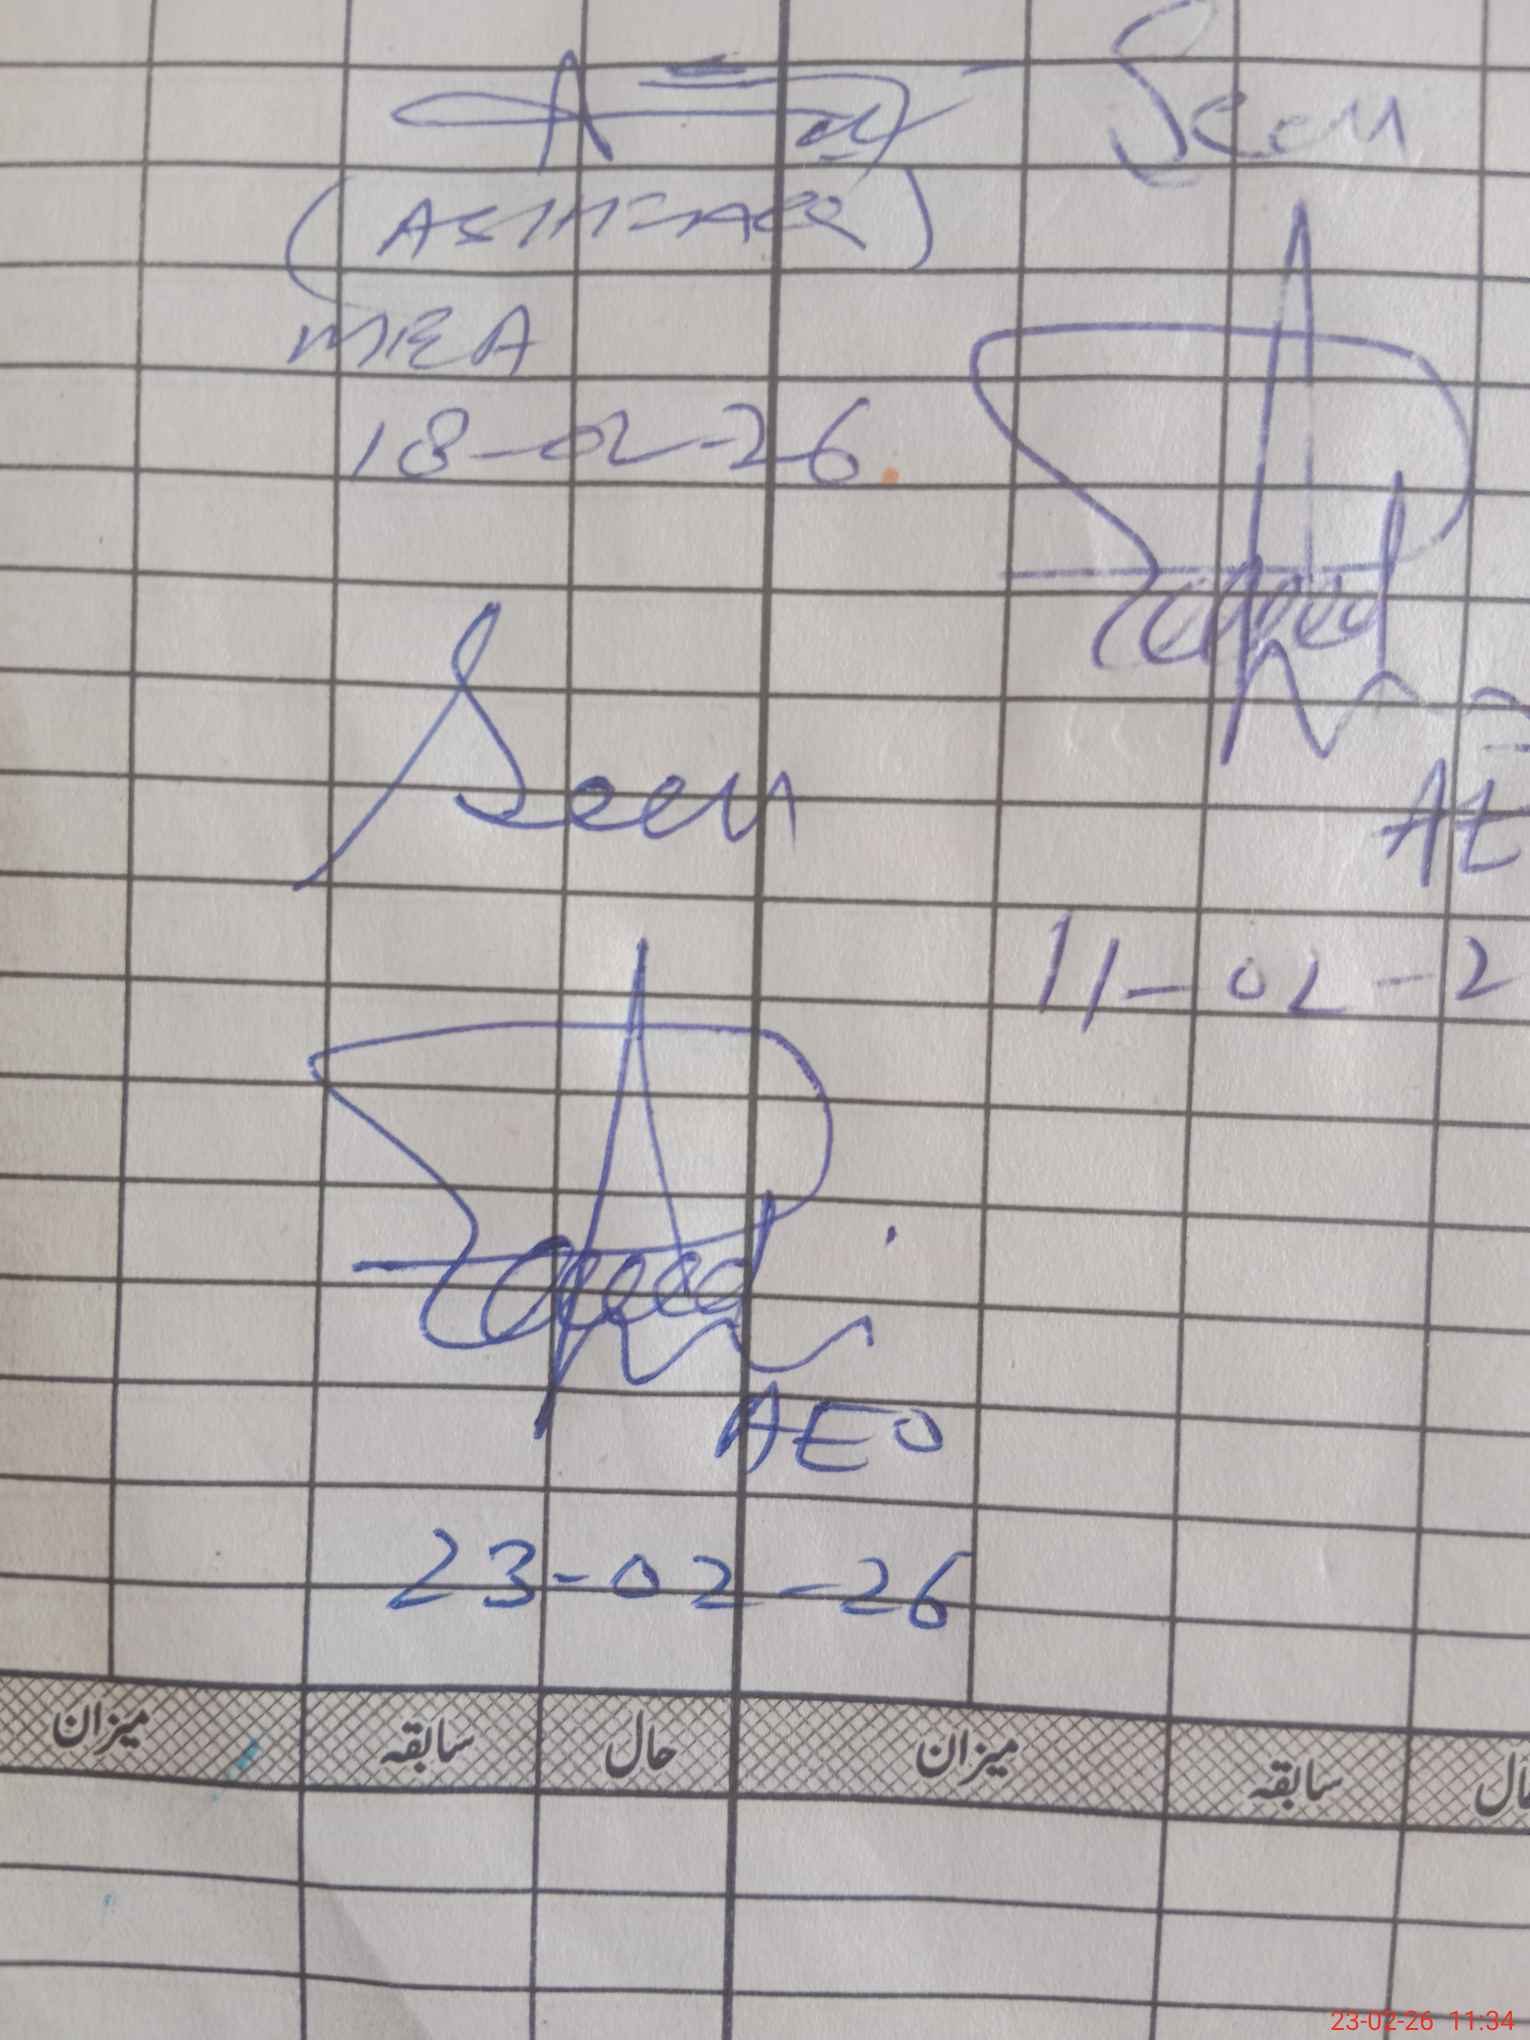 Seen
MEA
18-02-26
Seen
11-02-2
AEO
23-02-26
میزان سابقہ حال میزان سابقہ حال
23-02-26 11:34